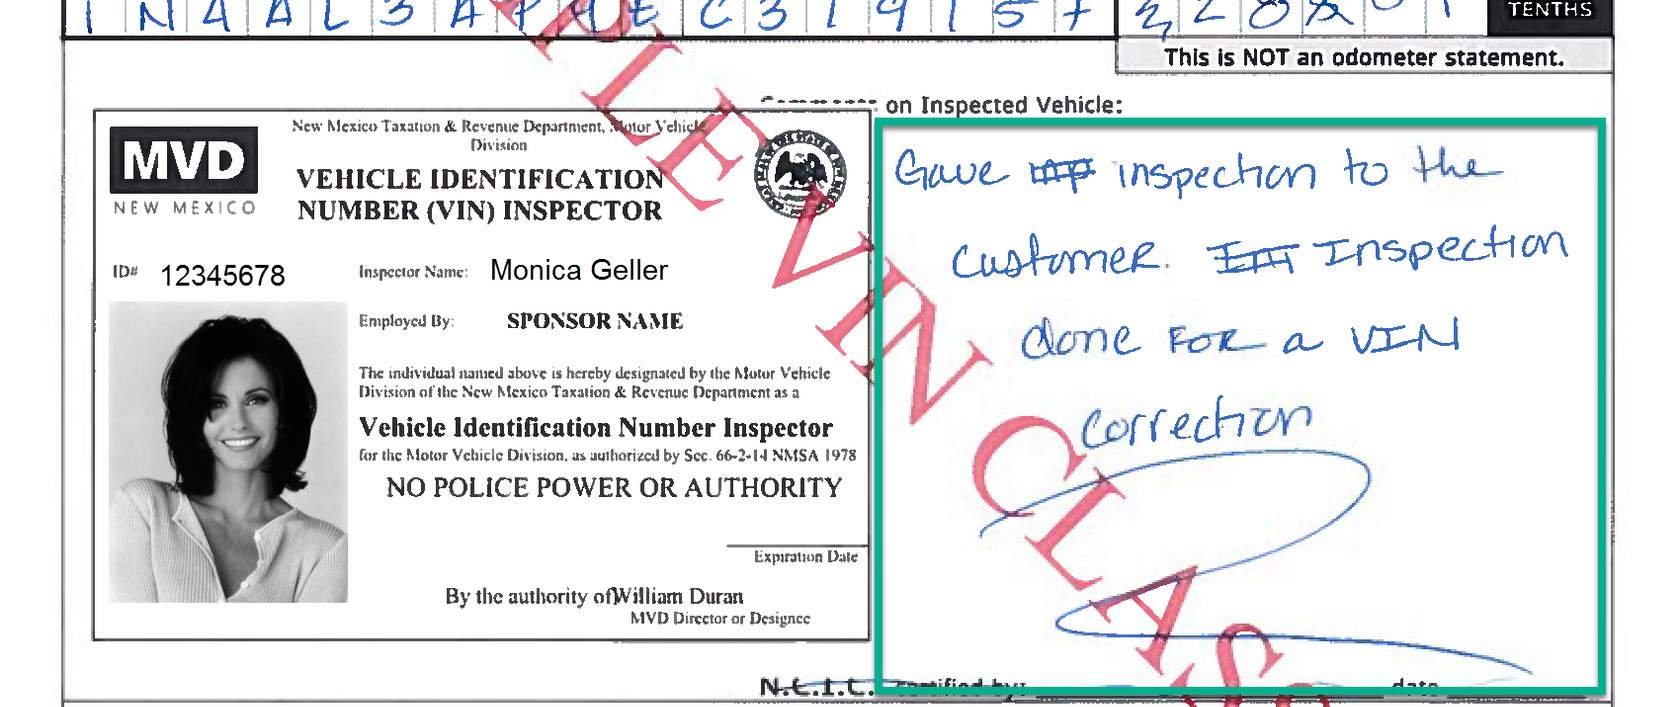 TENTHS
This is NOT an odometer statement.
on Inspected Vehicle:
New Mexico Taxation & Revenue Department, Motor Vehicle
Division
MVD
NEW MEXICO
VEHICLE IDENTIFICATION
NUMBER (VIN) INSPECTOR
ID# 12345678
Inspector Name: Monica Geller
Employed By: SPONSOR NAME
The individual named above is hereby designated by the Motor Vehicle
Division of the New Mexico Taxation & Revenue Department as a
Vehicle Identification Number Inspector
for the Motor Vehicle Division, as authorized by Sec. 66-2-14 NMSA 1978
NO POLICE POWER OR AUTHORITY
Expiration Date
By the authority of William Duran
MVD Director or Designee
Gave inspection to the
customer. Inspection
done FOR a VIN
correction
N.C.I.C. certified by: date
PLE VIN CLAS